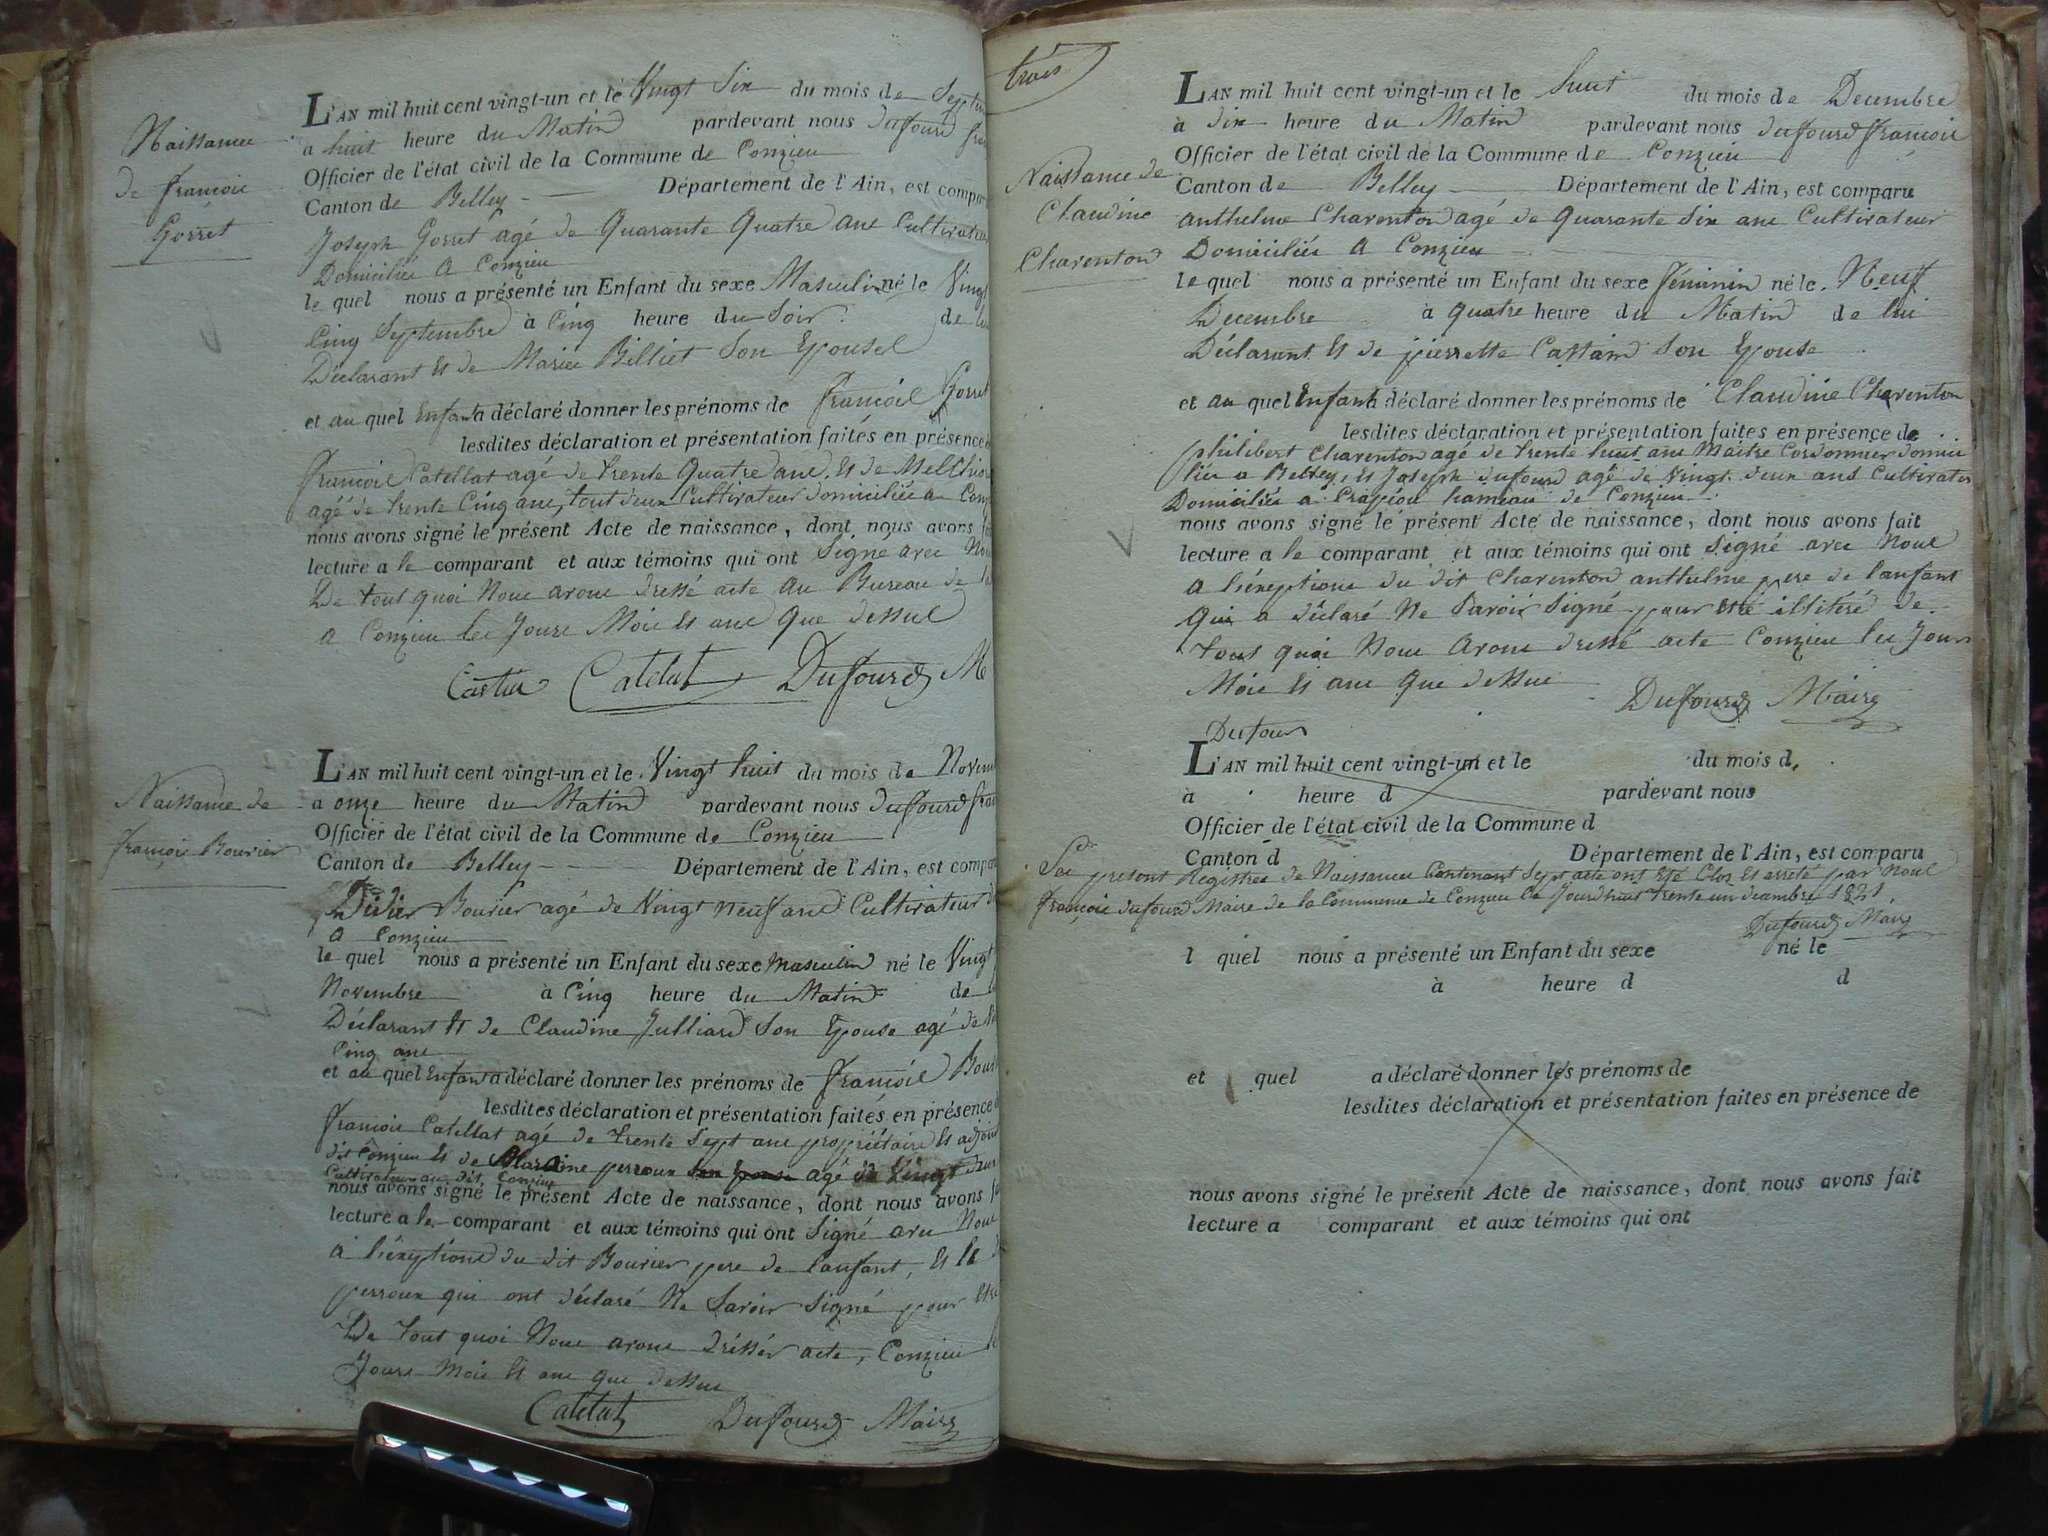 Naissance
de françois
Gorret
L'AN mil huit cent vingt-un et le Vingt Six du mois de Septem
a huit heure du Matin pardevant nous dufourd fra
Officier de l'état civil de la Commune de Conzieu
Canton de Belley Département de l'Ain, est compar
Joseph Gorret agé de Quarante Quatre ans Cultivateur
Domiciliés A Conzieu
le quel nous a présenté un Enfant du sexe Masculin né le Vingt
Cinq Septembre à Cinq heure du Soir de lui
Déclarant Et de Marie Billiet Son Epouse
et au quel Enfant a déclaré donner les prénoms de françois Gorret
lesdites déclaration et présentation faites en présence
françois Catellat agé de trente Quatre ans. Et de Melchior
agé de trente Cinq ans, tout deux Cultivateur domiciliés a Conz
nous avons signé le présent Acte de naissance, dont nous avons f
lecture a le comparant et aux témoins qui ont Signé avec Nous
De tout quoi Nous avons dressé acte au Bureau de
a Conzieu les Jours Mois Et ans Que dessus
Catelat Dufourd M
Naissance de
françois Bourier
L'AN mil huit cent vingt-un et le Vingt huit du mois de Novem
a onze heure du Matin pardevant nous dufourd fran
Officier de l'état civil de la Commune de Conzieu
Canton de Belley Département de l'Ain, est compar
Didier Bourier agé de Vingt neuf ans Cultivateur d
a Conzieu
le quel nous a présenté un Enfant du sexe masculin né le Vingt
Novembre à Cinq heure du Matin de
Déclarant Et de Claudine Julliard Son Epouse agé de
Cinq ans
et au quel Enfant a déclaré donner les prénoms de françois Bour
lesdites déclaration et présentation faites en présence
françois Catellat agé de trente Sept ans propriétaire Et adjoint
dit Conzieu Et de perroux agé de Vingt deux
Cultivateur au dit Conzieu
nous avons signé le présent Acte de naissance, dont nous avons fa
lecture a le comparant et aux témoins qui ont Signé avec Nous
a l'éxeptions du dit Bourier pere de l'anfant, Et le
perroux qui ont déclaré Ne Savoir Signé pour Etre
De tout quoi Nous avons drésser acte, Conzieu
Jours Mois Et ans que dessus
Catelat Dufourd Maire
trois
Naissance de
Claudine
Charenton
L'AN mil huit cent vingt-un et le huit du mois de Decembre
à dix heure du Matin pardevant nous dufourd françois
Officier de l'état civil de la Commune de Conzieu
Canton de Belley Département de l'Ain, est comparu
anthelme Charenton agé de Quarante Six ans Cultivateur
Domiciliés A Conzieu
le quel nous a présenté un Enfant du sexe féminin né le Neuf
Decembre à Quatre heure du Matin de lui
Déclarant Et de pierrette Son Epouse
et au quel Enfant a déclaré donner les prénoms de Claudine Charenton
lesdites déclaration et présentation faites en présence de
philibert Charenton agé de trente huit ans Maitre Cordonnier domici
liés a Belley, Et Joseph dufourd agé de Vingt deux ans Cultivateur
Domiciliés a hameau de Conzieu
nous avons signé le présent Acte de naissance, dont nous avons fait
lecture a le comparant et aux témoins qui ont Signé avec Nous
a l'éxeptions du dit Charenton anthelme pere de l'anfant
Qui a déclaré Ne Savoir Signé pour Etre illitéré de
tout quoi Nous avons dressé acte Conzieu les Jours
Mois Et ans Que dessus
Dufourd Maire
Dufour
L'AN mil huit cent vingt-un et le du mois d
à heure d pardevant nous
Officier de l'état civil de la Commune d
Canton d Département de l'Ain, est comparu
present Régistres de Naissances Contenant Sept acte ont Eté Clos Et arreté par Nous
françois dufourd Maire de la Commune de Conzieu Ce Jourdhuit trente un decembre 1821
Dufourd Maire
l quel nous a présenté un Enfant du sexe né le
à heure d d
et quel a déclaré donner les prénoms de
lesdites déclaration et présentation faites en présence de
nous avons signé le présent Acte de naissance, dont nous avons fait
lecture a comparant et aux témoins qui ont